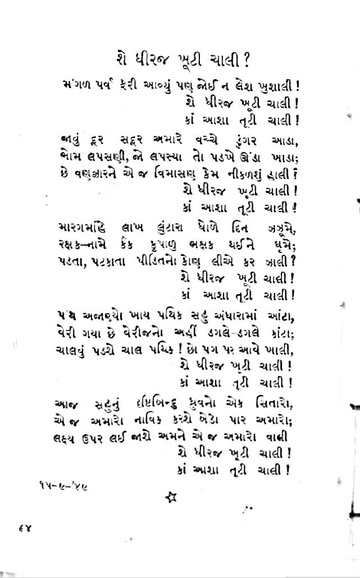 શે ધીરજ ખૂટી ચાલી ?
મંગળ પર્વ ફરી આવ્યું પણ જોઈ ન લેશ ખુશાલી !
શે ધીરજ ખૂટી ચાલી !
કાં આશા તૂટી ચાલી !
જાવું દૂર સદૂર અમારે વચ્ચે ડુંગર આડા,
ભોમ લપસણી, જો લપસ્યા તો પડખે ઊંડા ખાડા;
છે વણઝારને એ જ વિમાસણ કેમ નીકળશું હાલી ?
શે ધીરજ ખૂટી ચાલી !
કાં આશા તૂટી ચાલી !
મારગમાંહે લાખ લુંટારા ધોળે દિન ઝઝૂમે,
રક્ષક-નામે કંક કૃપાળુ ભક્ષક થઈને ઘૂમે;
પડતા, પટકાતા પીડિતનો કોણ લીએ કર ઝાલી ?
શે ધીરજ ખૂટી ચાલી !
કાં આશા તૂટી ચાલી !
પંથ અજાણ્યો ખાય પથિક સહુ અંધારામાં આંટા,
વેરી ગયા છે વેરીજનો અહીં ડગલે-ડગલે કાંટા;
ચાલવું પડશે ચાલ પથિક ! છો પગ પર આવે ખાલી,
શે ધીરજ ખૂટી ચાલી !
કાં આશા તૂટી ચાલી !
આજ સહુનું દૃષ્ટિબિન્દુ ધ્રુવનો એક સિતારો,
એ જ અમારો નાવિક કરશે બેડો પાર અમારો;
લક્ષ્ય ઉપર લઈ જાશે અમને એ જ અમારો વાલી
શે ધીરજ ખૂટી ચાલી !
કાં આશા તૂટી ચાલી !
૧૫-૯-'૪૯
૬૪